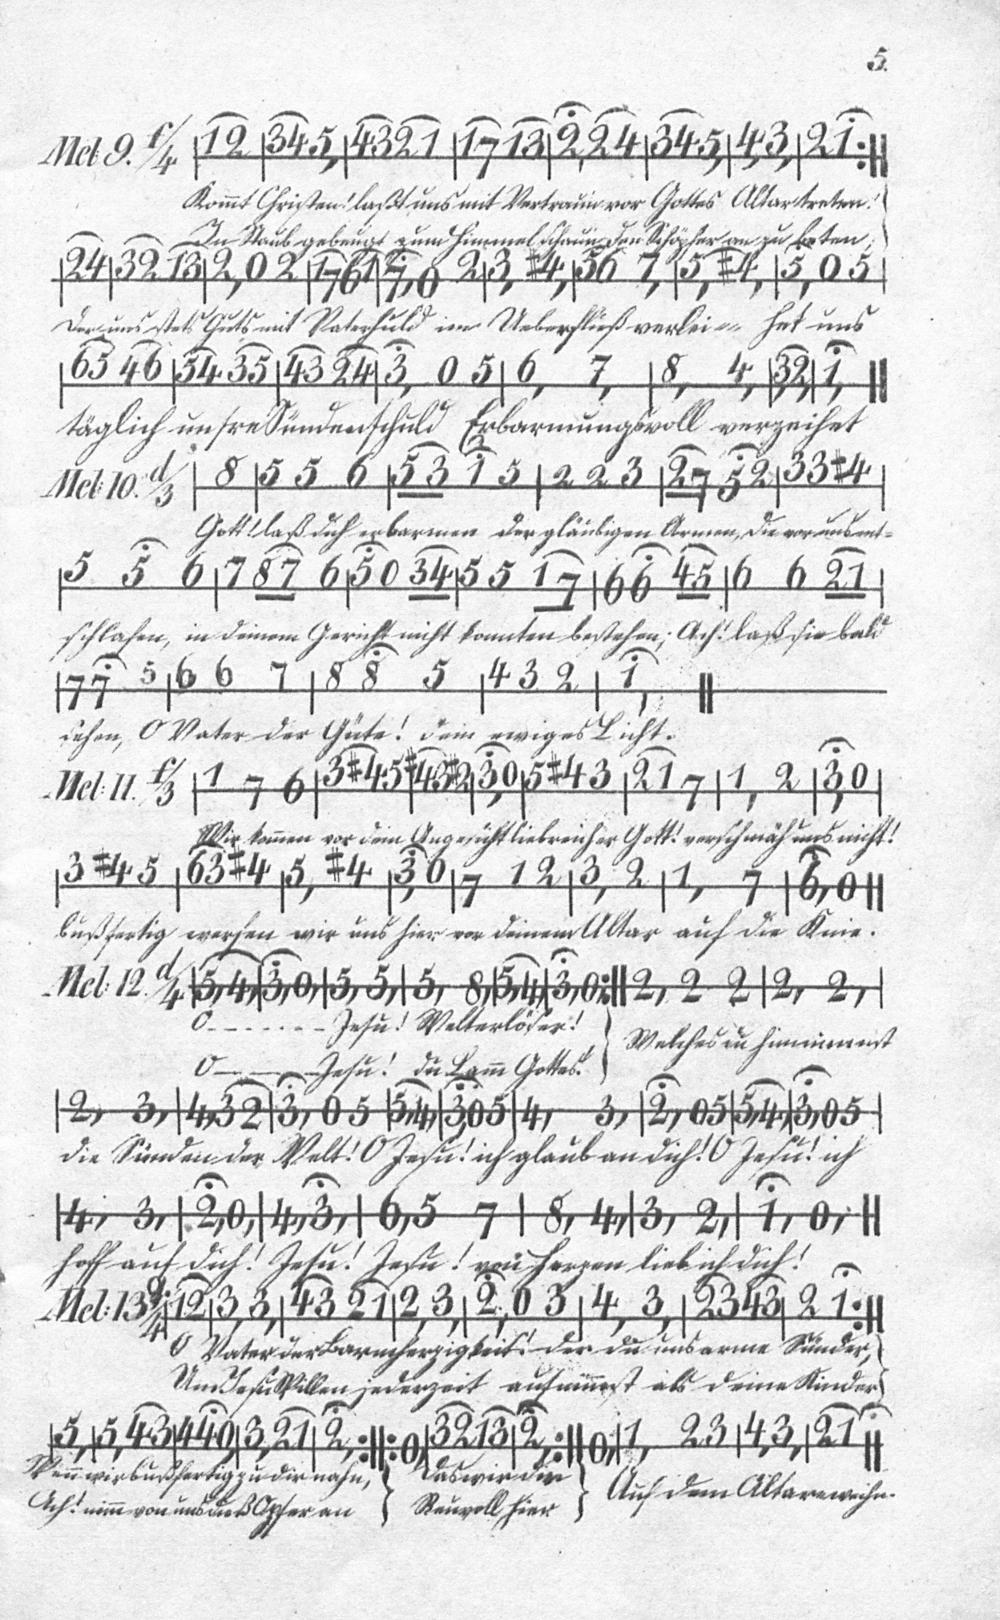 5.
Mel: 9. f/4 12 | 345, | 4321 | 17 13 | 2, 24 | 345, | 4, 3, | 21 :||
Kom̅t Christen! laßt uns mit Vertraun vor Gottes Altar treten!
In Staub gebeugt zum Himmel schaun den Schöpfer an zu beten,
24 | 32 13 | 2, 0 2 | 1761 | 7, 0 2 | 3, #4, | 56 7, | 5, #4, | 5, 0 5
Der uns stets Guts mit Vaterhuld im Ueberfluß verlei-- het uns
65 46 | 54 35 | 43 24 | 3, 0 5 | 6, 7, | 8, 4, | 32, | 1, ||
täglich unsre Sündenschuld Erbarmungsvoll verzeihet
Mel: 10. d/3 8 | 5 5 6 | 5 3 1 5 | 2 2 3 | 27 5 2 | 3 3 #4
Gott! laß dich erbarmen der gläubigen Armen, die vor uns ent=
5 5 6 | 7 87 6 | 5 0 34 | 5 5 17 | 6 6 45 | 6 6 21
schlafen, in deinem Gericht nicht konnten bestehen; Ach! laß sie bald
7 7 5 | 6 6 7 | 8 8 5 | 4 3 2 | 1, ||
sehen, O Vater der Güte! dein ewiges Licht.
Mel: 11. f/3 1 7 6 | 3 #4 5 | #4 3 #2 | 3, 0 | 5 #4 3 | 2 1 7 | 1, 2 | 3, 0
Wir kom̅en vor dein Angesicht liebreicher Gott! verschmäh uns nicht!
3 #4 5 | 63 #4 | 5, #4 | 3, 0 | 7 1 2 | 3, 2 | 1, 7 | 6, 0 ||
bußfertig werfen wir uns hier vor deinem Altar auf die Knie.
Mel: 12. d/4 5, 4, | 3, 0, | 5, 5, | 5, 8, | 5, 4, | 3, 0 :|| 2, 2 2 | 2, 2,
O - - - - - - - Jesu! Welterlöser!
Welches du hinnimmst
O - - - - Jesu! du Lam̅ Gottes!
2, 3, | 4, 32 | 3, 0 5 | 5, 4, | 3, 0 5 | 4, 3, | 2, 0 5 | 5, 4, | 3, 0 5
die Sünden der Welt! O Jesu! ich glaub an dich! O Jesu! ich
4, 3, | 2, 0, | 4, 3, | 6, 5 7 | 8, 4, | 3, 2, | 1, 0, ||
hoff auf dich! Jesu! Jesu! von Herzen lieb ich dich!
Mel: 13 12 | 3, 3, | 43 21 | 2, 3, | 2, 0 3 | 4, 3, | 2343 | 2 1 :||
O Vater der Barmherzigkeit! der du uns arme Sünder,
Um Jesu Willen jederzeit aufnim̅st als deine Kinder
5, | 5, 43 | 440 | 3, 21 | 2, :||: 0, | 32 13 | 2, :|| 0, | 1, 23 | 4, 3, | 21 ||
Wen̅ wir bußfertig zu dir nahn,
Das wir dir
Auf dem Altare weihn.
Ach! nim̅ von uns dieß Opfer an
Reuvoll hier